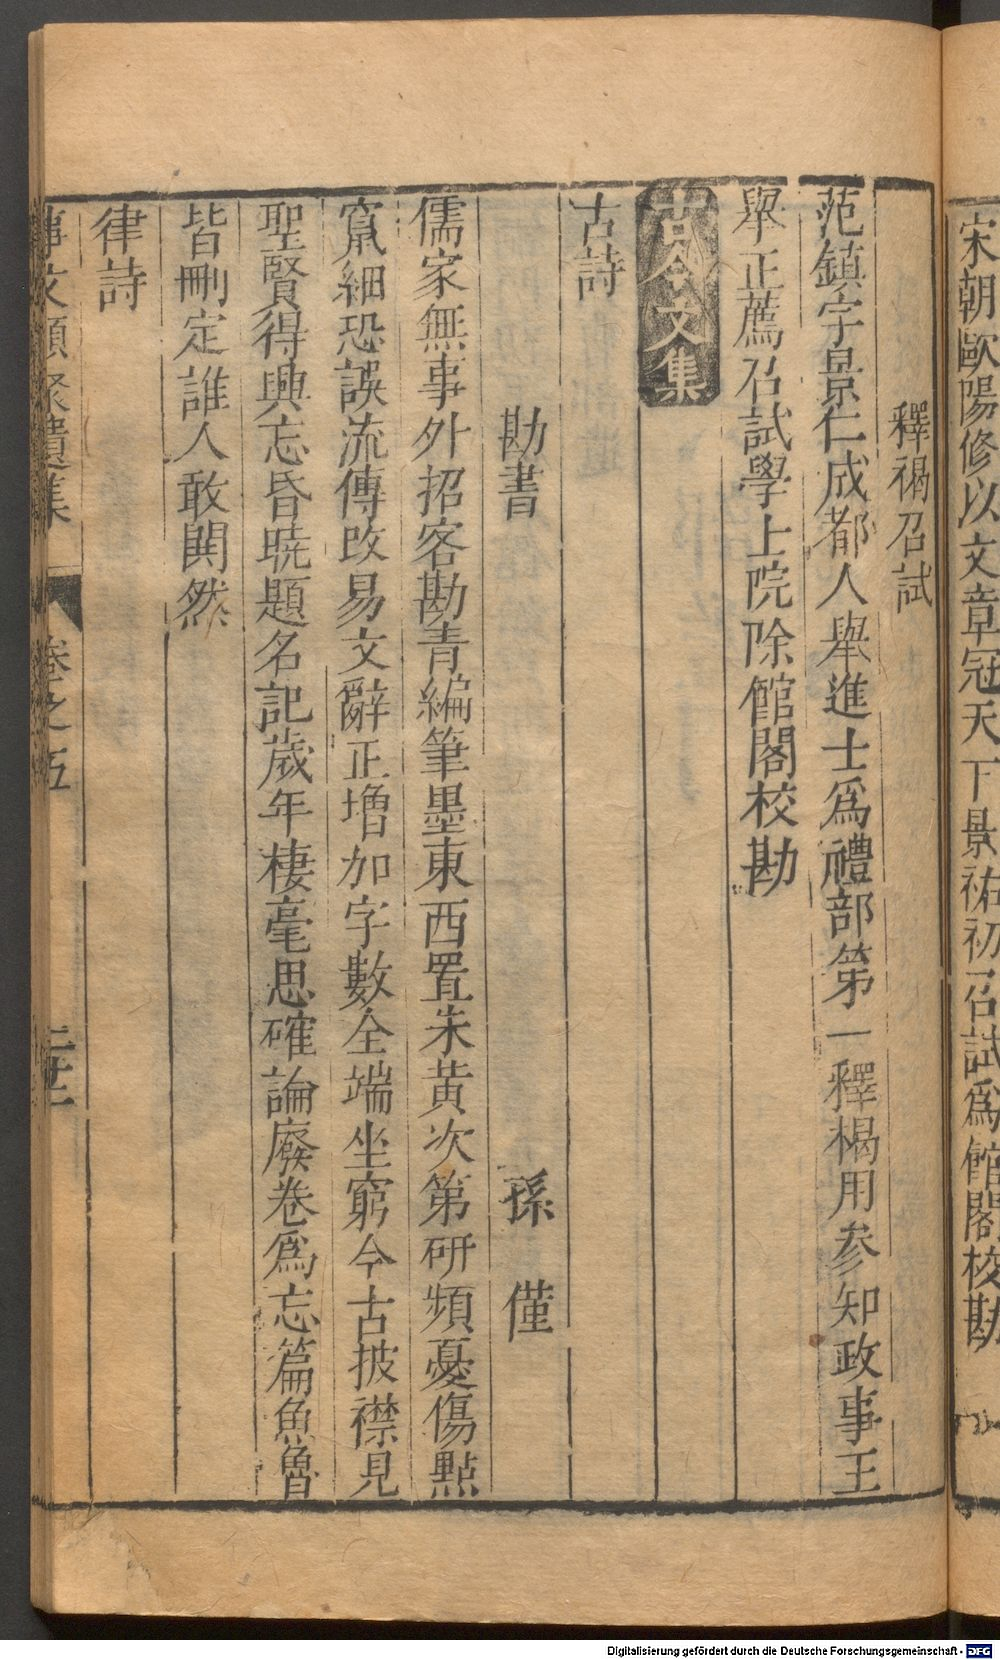 宋朝歐陽修以文章冠天下景祐初召試爲館閣校勘
釋褐召試
范鎮字景仁成都人舉進士爲禮部第一釋褐用參知政事王
舉正薦召試學士院除館閣校勘
古今文集
古詩
勘書 孫 僅
儒家無事外招客勘青編筆墨東西置朱黃次第研頻憂傷點
竄細恐誤流傳改易文辭正增加字數全端坐窮今古披襟見
聖賢得興忘昏曉題名記歲年棲毫思確論廢卷爲忘篇魚魯
皆刪定誰人敢閧然
律詩
事文類聚遺集 卷之五 二十二
Digitalisierung gefördert durch die Deutsche Forschungsgemeinschaft - DFG